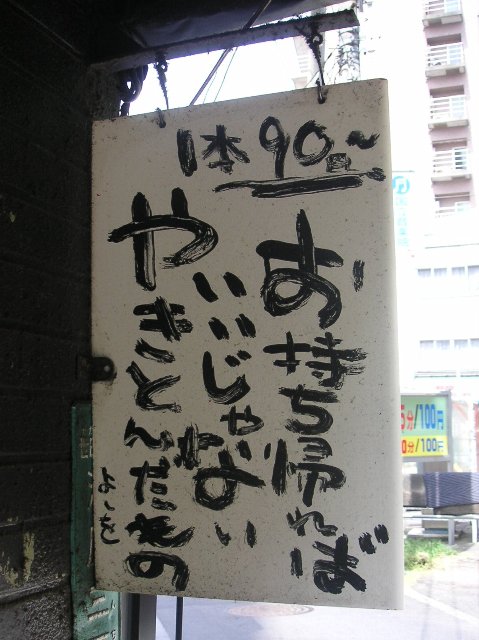 1本90円〜
お持ち帰れば
いいじゃない
やきとんだもの
5分/100円
0分/100円